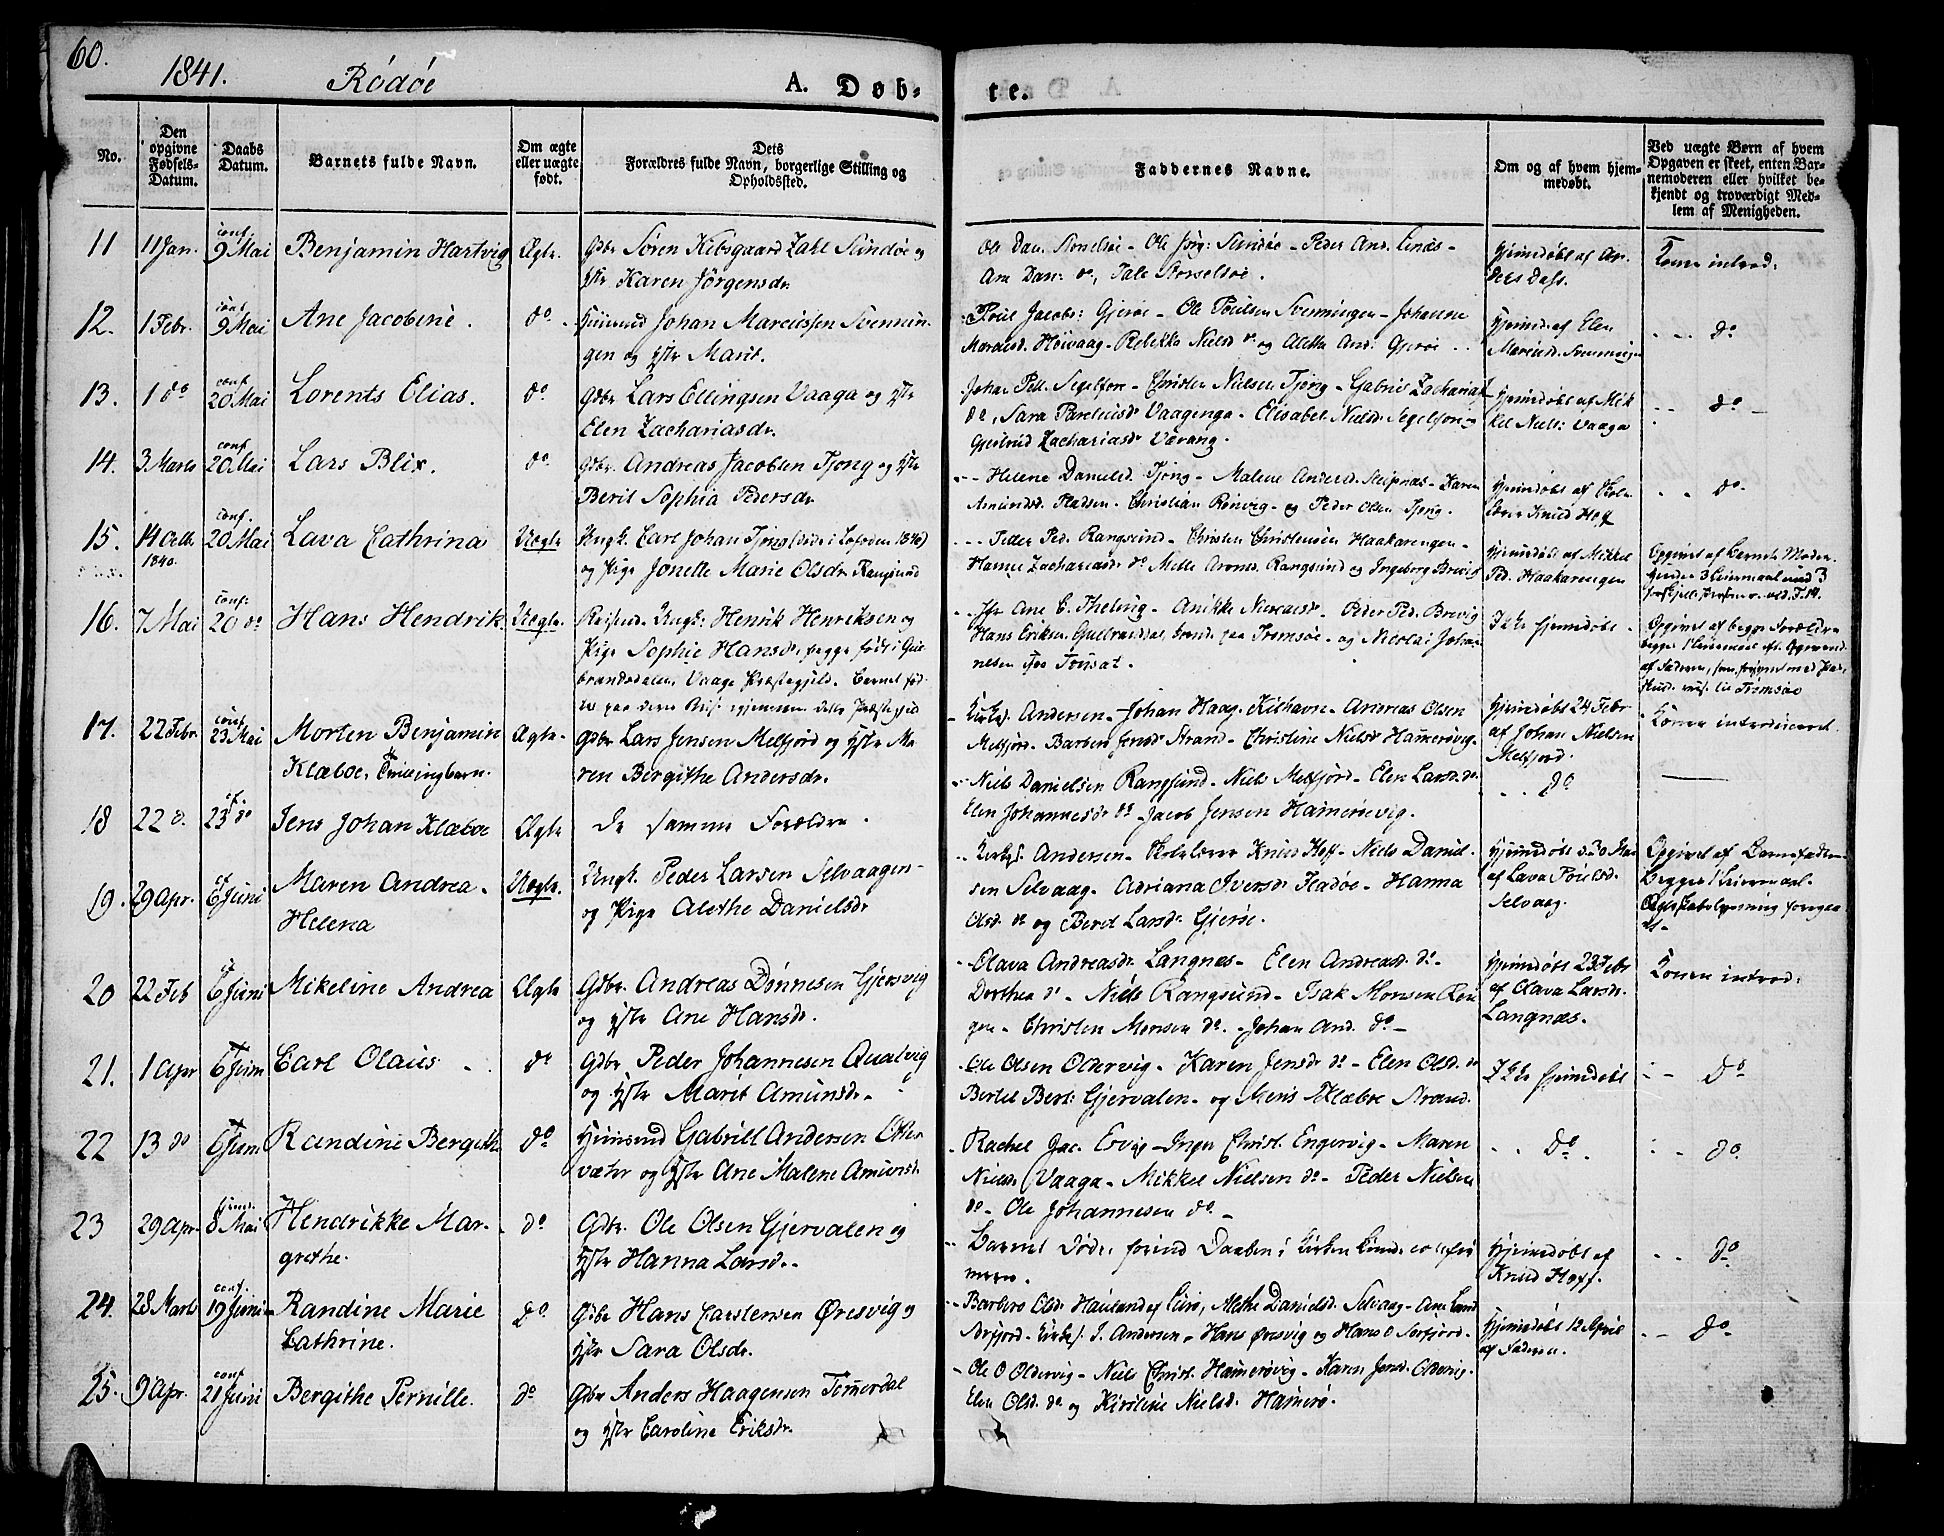 60.
1841. Rödöe
A. Døb-
te.
No.
Den opgivne Fødsels-Datum.
Daabs Datum.
Barnets fulde Navn.
Om ægte eller uægte født.
Dets Forældres fulde Navn, borgerlige Stilling og Opholdssted.
Faddernes Navne.
Om og af hvem hjemmedøbt.
Ved uægte Børn af hvem Opgaven er skeet, enten Barnemoderen eller hvilket bekjendt og troværdigt Medlem af Menigheden.
11 11 Jan. conf. 9 Mai Benjamin Hartvig Ægte. Gdbr Sören Kebsgaard Zahl Sundöe og
Hstr Karen Jörgensdr.
Ole Dan. Storselsöe - Ole Jörg: Sundöe - Peder And.
Ana Dan: do, Tale Storselsöe.
Hjemdöbt af An-
ders Dass.
Konen introd:
12. 1 Febr. conf 9 Mai Ane Jacobine. do. Huusmd Johan Marcussen Svennin-
gen og Hstr Marit.
Poul Jacobs: Gjeröe - Ole Poulsen Svenningen - Johanna
Höivaag - Rebekka Nielsd do og Aletta And: Gjeröe
Hjemd. af Elen
Svenningen
do
13. 1 do conf 20 Mai Lorents Elias. do. Gdbr Lars Ellingsen Vaaga og Hstr
Elen Zachariasdr.
Johan Pett. Segelfore - Christen Nielsen Tjong - Gabriel Zachariass
do, Sara Vaagenga - Elisabet Nielsd Segelfore
Gjertrud Zachariasdr Værang.
Hjemdöbt af Mik
kel Niels: Vaaga
do
14. 3 Marts conf 20 Mai Lars Blix. do. Gdbr Andreas Jacobsen Tjong og Hstr
Beril Sophia Pedersdr
Helene Danielsd. Tjong - Malene Andersd. Selsnæs - Karen
Amundsd. - Christian Rönvig - og Peder Olsen Tjong.
Hjemdöbt af Skole-
lærer Knud Hoff
do
15. 14 Octbr 1840. conf. 20 Mai Lava Cathrina Uægte Ungk. Carl Johan Tjong (död i Lofoden 1840)
og Pige Jonette Marie Olsdr. Rangsund
Peder Ped. Rangsund - Christen Christensen Haakarengen -
Hanna Zachariasdr do Mette Aronsd. Rangsund og Ingeborg Brevig
Hjemdöbt af Mikkel
Ped. Haakarengen
Opgivet af Barnets Moder.
16. 7 Mai conf: 20 do Hans Hendrik. Uægte. Reisende Ungk: Henrik Henriksen og
Pige Sophie Hansdr, begge födt i Gul-
brandsdalen, Vaage Præstegjeld. Barnet föd-
t paa deres Reise igjennem dette Præstegjeld
Jfr Ane C. Theling - Anikke Nicolaisdr - Peder Ped. Brevig
Hans Eriksen paa Tromsöe - og Nicolai Johan-
nesen
Ikke hjemdöbt
Opgivet af begge Forældre
17. 22 Febr conf 23 Mai Morten Benjamin
Klæboe. Tvillingbarn.
Ægte. Gdbr Lars Jensen Melfjord og Hstr Ma-
ren Bergithe Andersdr.
Kirkes. Andersen - Johan Haag. Kilhavn - Andreas Olsen
Melfjord - Barbera Jensdr Strand - Christine Nielsdr Hamerövig -
Hjemdöbt 24 Febr
af Johan Nielsen
Melfjord.
Konen introduceret.
18 22 d. cf. 23 do Jens Johan Klæboe Ægte De samme Forældre.
Niels Danielsen Rangsund - Niels Melfjord - Elen Larsd. do.
Elen Johannesdr do Jacob Jensen Hamerövig.
do
19. 29 Apr. cf 6 Juni Maren Andrea
Helena
Uægte. Ungk. Peder Larsen Selvaagen -
og Pige Alethe Danielsdr
Kirkes. Andersen - Skolelærer Knud Hoff - Niels Daniel-
sen Selvaag. Adriana Iversdr - Hanna
Olsd. do og Beret Larsd. Gjeröe.
Hjemdöbt d. 30 Mai
af Lava Poulsd.
Selvaag.
Opgivet af Barnefader.
20 22 Feb cf 6 Juni Mikeline Andrea Ægte Gdbr. Andreas Dönnesen Gjersvig
og Hstr Ane Hansdr.
Olava Andreasdr. Langnæs - Elen Andreasd. do -
Dorthea do - Niels Rangsund - Isak Monsen Ren
gen - Christen Monsen do. - Johan And. do -
Hjemdöbt 23 Febr
af Olava Larsdr.
Langnæs.
Konen introd:
21. 1 Apr 6 Juni Carl Olaus do Gdbr Peder Johannesen Qualvig
og Hstr Marit Amunsdr -
Ole Olsen Oldervig - Karen Jensdr do - Elen Olsd. do
Bertel Bert: Gjervalen - og Mons Klæboe Strand.
Ikke hjemdöbt
do
22 13 do 6 Juni Randine Bergithe do Huusmd Gabriel Andersen Otter-
vær og Hstr Ane Malene Amundsdr.
Rachel Jac. - Inger Christ. Engervig - Maren
Nielsd. Vaaga - Mikkel Nielsen do - Peder Nielsen
do - Ole Johannesen do -
do.
do
23 29 Apr 8 Mai Hendrikke Mar-
grethe.
do Gdbr. Ole Olsen Gjervalen og
Hstr Hanna Larsd.
Barnet döde forind Daaben i Kirken
Hjemdöbt af
Knud Hoff.
do
24. 28 Marts conf. 19 Juni Randine Marie
Cathrine.
do Gdbr Hans Carstensen Øresvig og
Hstr Sara Olsdr.
Barbero Olsd. Alethe Danielsd. Selvaag - Ane
Sörfjord. Kirkes. J. Andersen - Hans Øresvig og Hans O Sörfjord.
Hjemdöbt 12 April
af Faderen.
do -
25. 9 Apr. conf 21 Juni Bergithe Pernille. do Gdbr Anders Haagensen Tömerdal
og Hstr Caroline Eriksdr.
Ole O Oldervig - Niels Christ. Hamerövig - Karen Jensd. Oldervig.
Elen Olsd. do og Kirstine Nielsd. Hamerö.